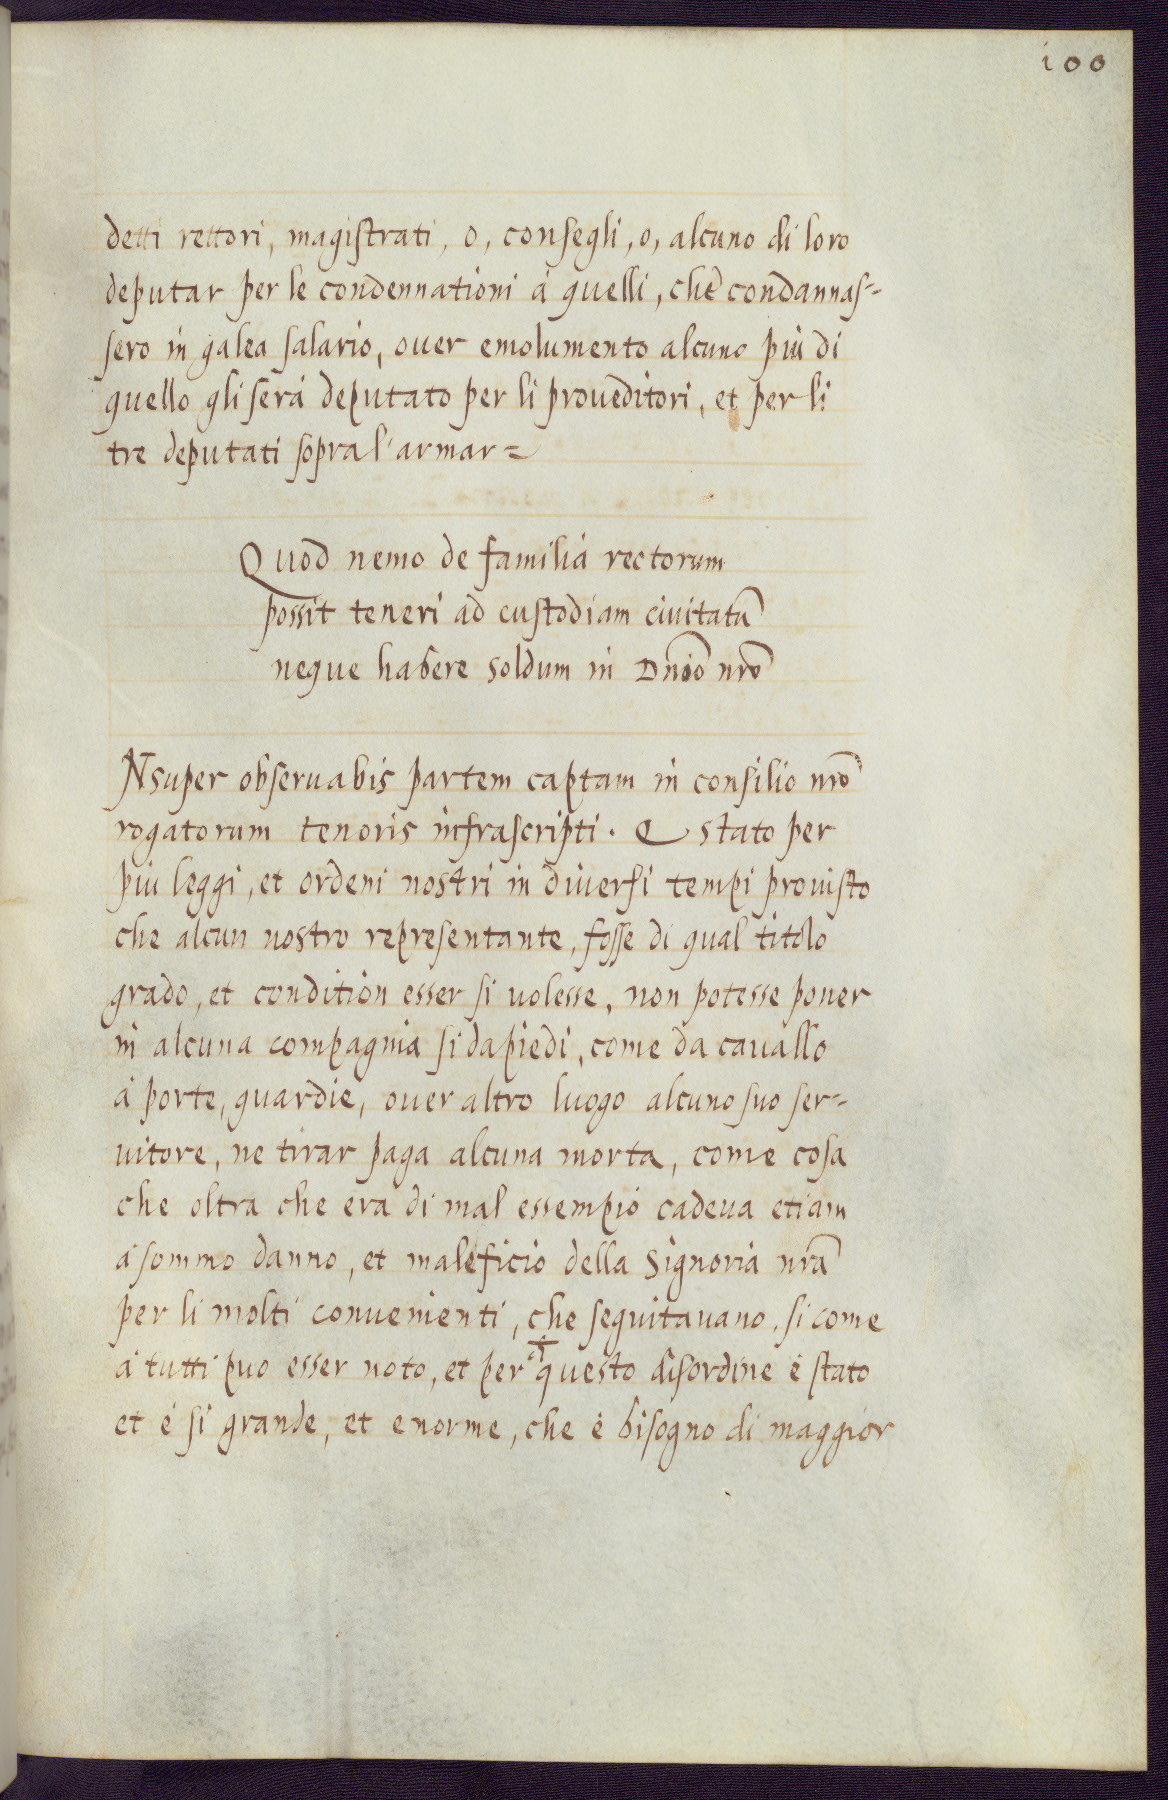 100
detti rettori, magistrati, o, consegli, o, alcuno di loro
deputar per le condennationi à quelli, che condannas-
sero in galea salario, ouer emolumento alcuno più di
quello gli serà deputato per li proueditori, et per li
tre deputati sopra l'armar
Quod nemo de familia rectorum
possit teneri ad custodiam ciuitatū
neque habere soldum in Dnio nro
INsuper obseruabis partem captam in consilio nro
rogatorum tenoris infrascripti. E stato per
più leggi, et ordeni nostri in diuersi tempi prouisto
che alcun nostro representante, fosse di qual titolo
grado, et condition esser si uolesse, non potesse poner
in alcuna compagnia si da piedi, come da cauallo
à porte, guardie, ouer altro luogo alcuno suo ser-
uitore, ne tirar paga alcuna morta, come cosa
che oltra che era di mal essempio cadeua etiam
à sommo danno, et maleficio della Signoria nra
per li molti conuenienti, che seguitauano, si come
à tutti puo esser noto, et per questo disordine è stato
et è si grande, et enorme, che è bisogno di maggior